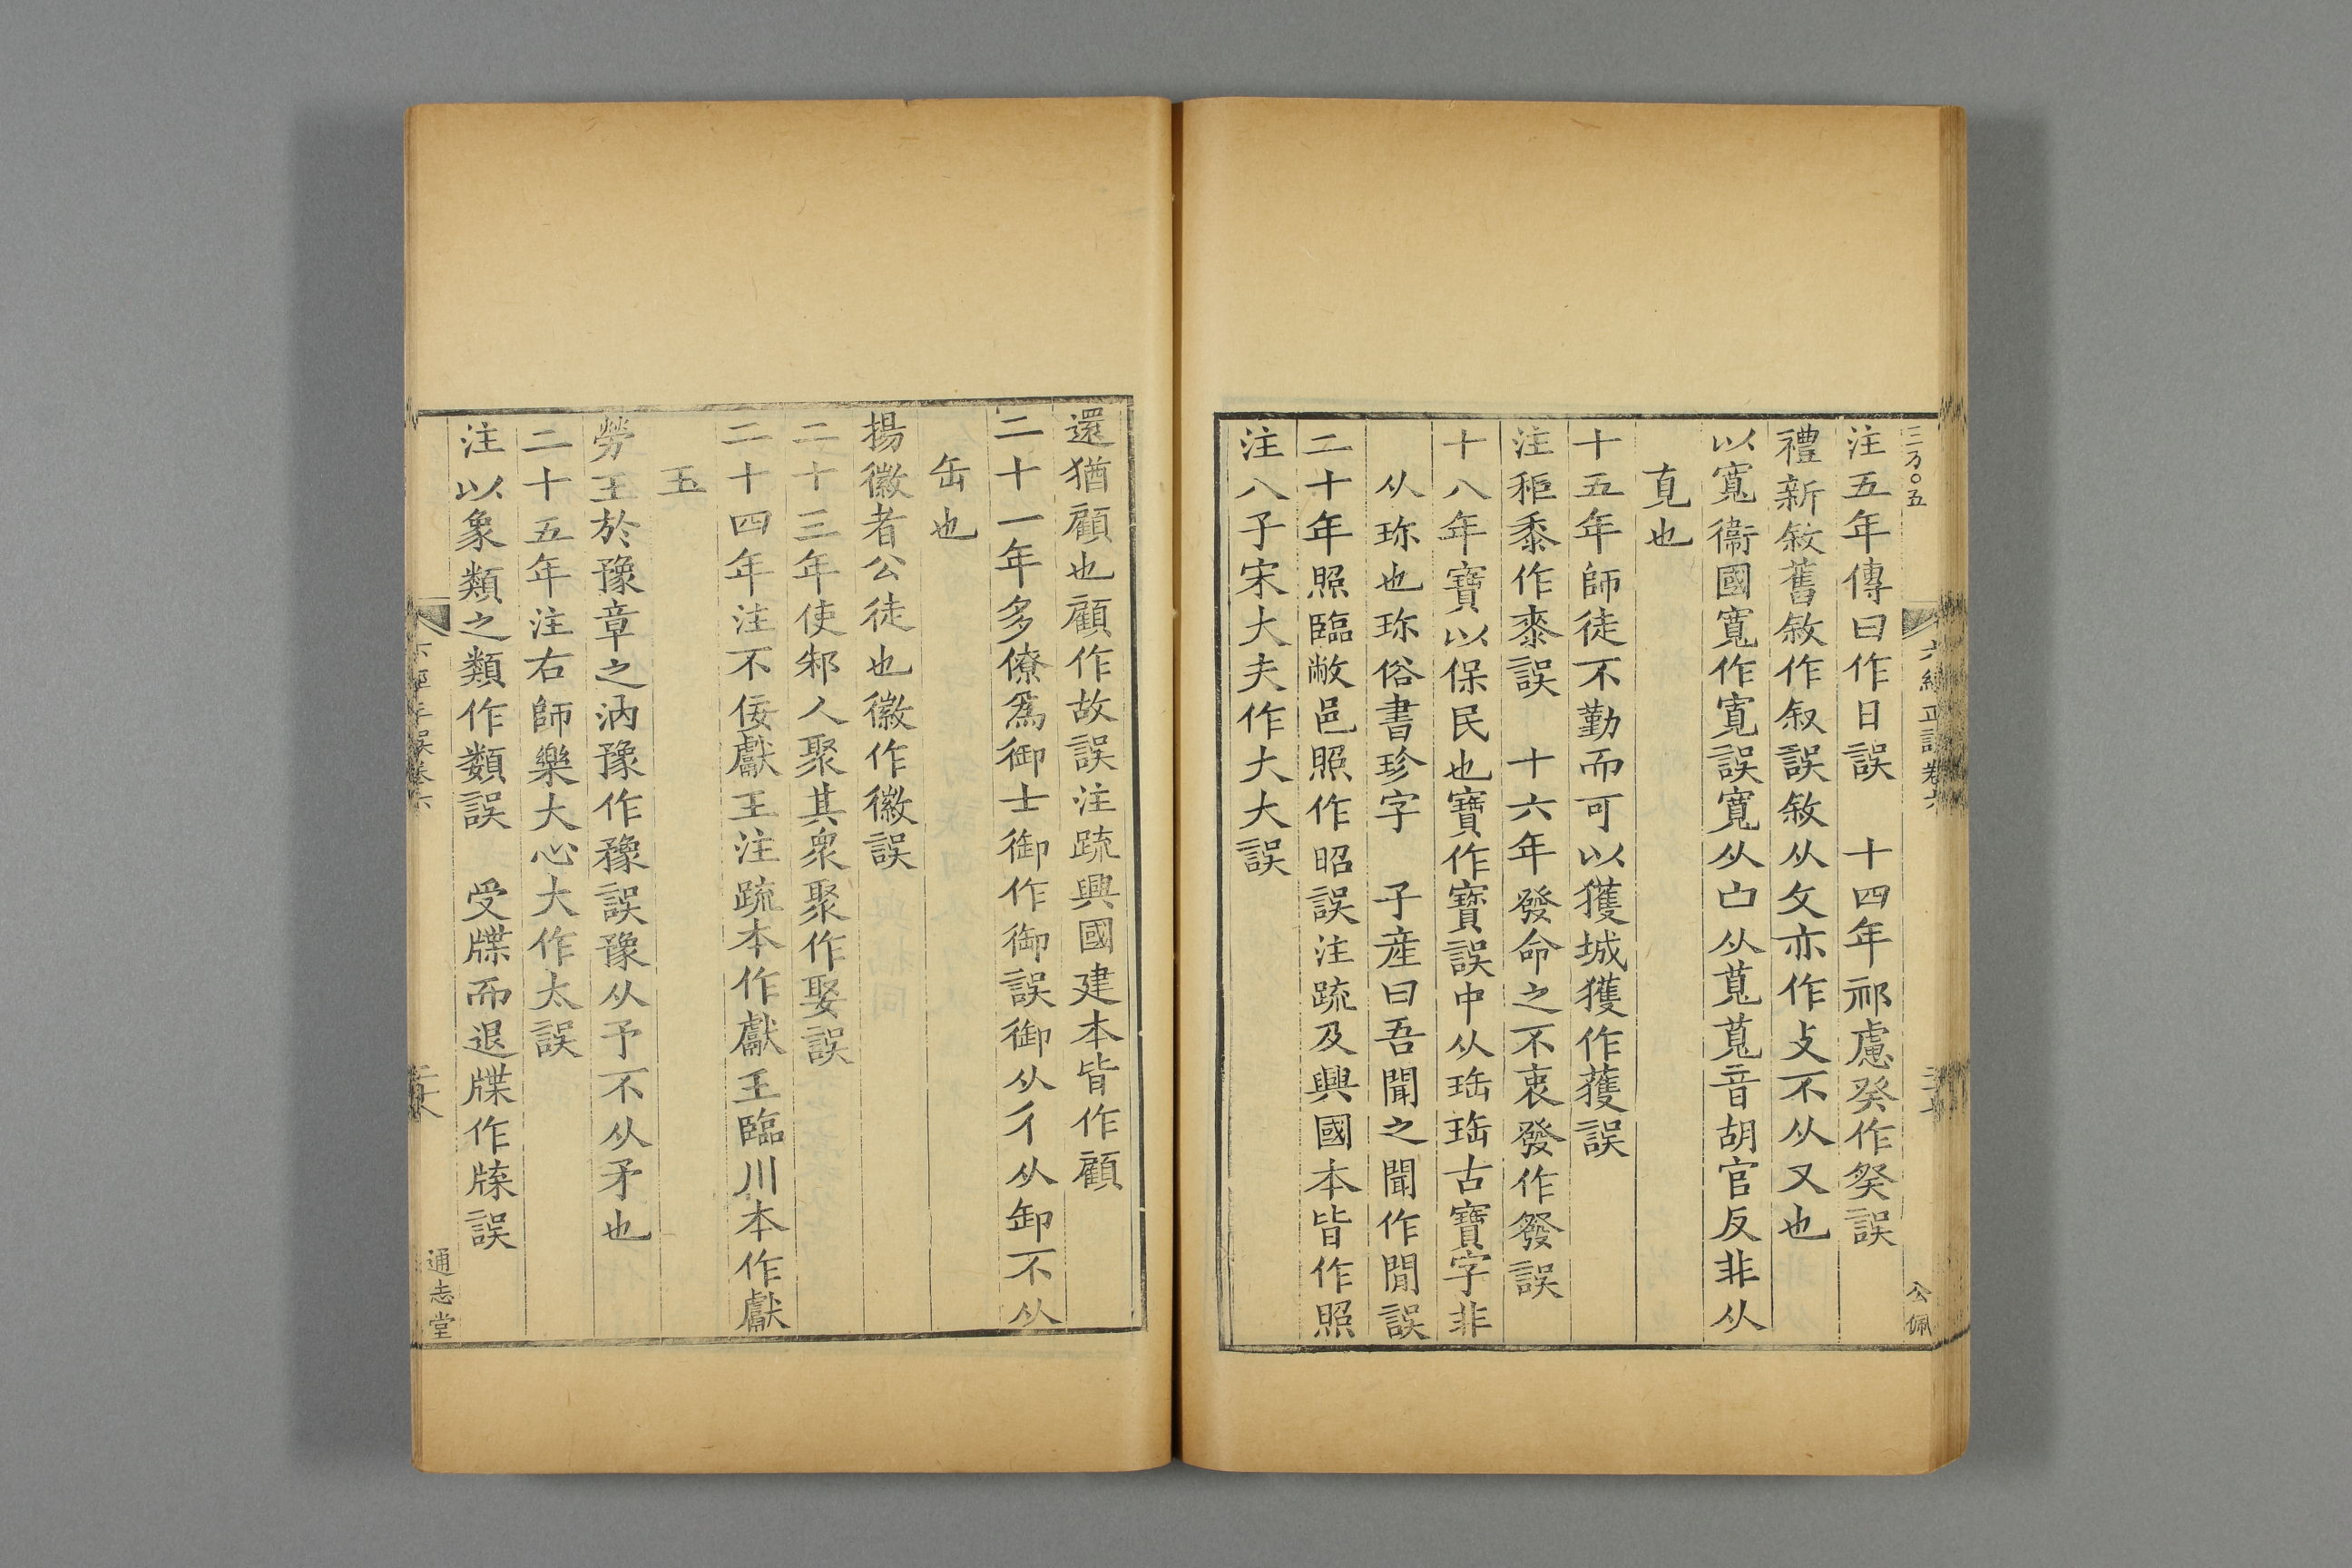 三万〇五
注五年傳曰作日誤　十四年祁慮癸作癹誤
禮新敘舊敘作叙誤敘从攵亦作攴不从又也
以寬衞國寬作寛誤寬从宀从萈萈音胡官反非从
𦭝也
十五年師徒不勤而可以獲城獲作𫉬誤
注秬黍作𥹫誤　十六年發命之不衷發作𤼵誤
十八年寶以保民也寶作寳誤中从珤珤古寶字非
从珎也珎俗書珍字　子產曰吾聞之聞作閒誤
二十年照臨敝邑照作昭誤注疏及興國本皆作照
注八子宋大夫作大大誤
公佩
還猶顧也顧作故誤注疏興國建本皆作顧
二十一年多僚爲御士御作御誤御从彳从卸不从
缶也
揚徽者公徒也徽作徽誤
二十三年使邾人聚其衆聚作娶誤
二十四年注不佞獻王注疏本作獻王臨川本作獻
玉
勞王於豫章之汭豫作豫誤豫从予不从矛也
二十五年注右師樂大心大作太誤
注以象類之類作類誤　受牒而退牒作牒誤
通志堂